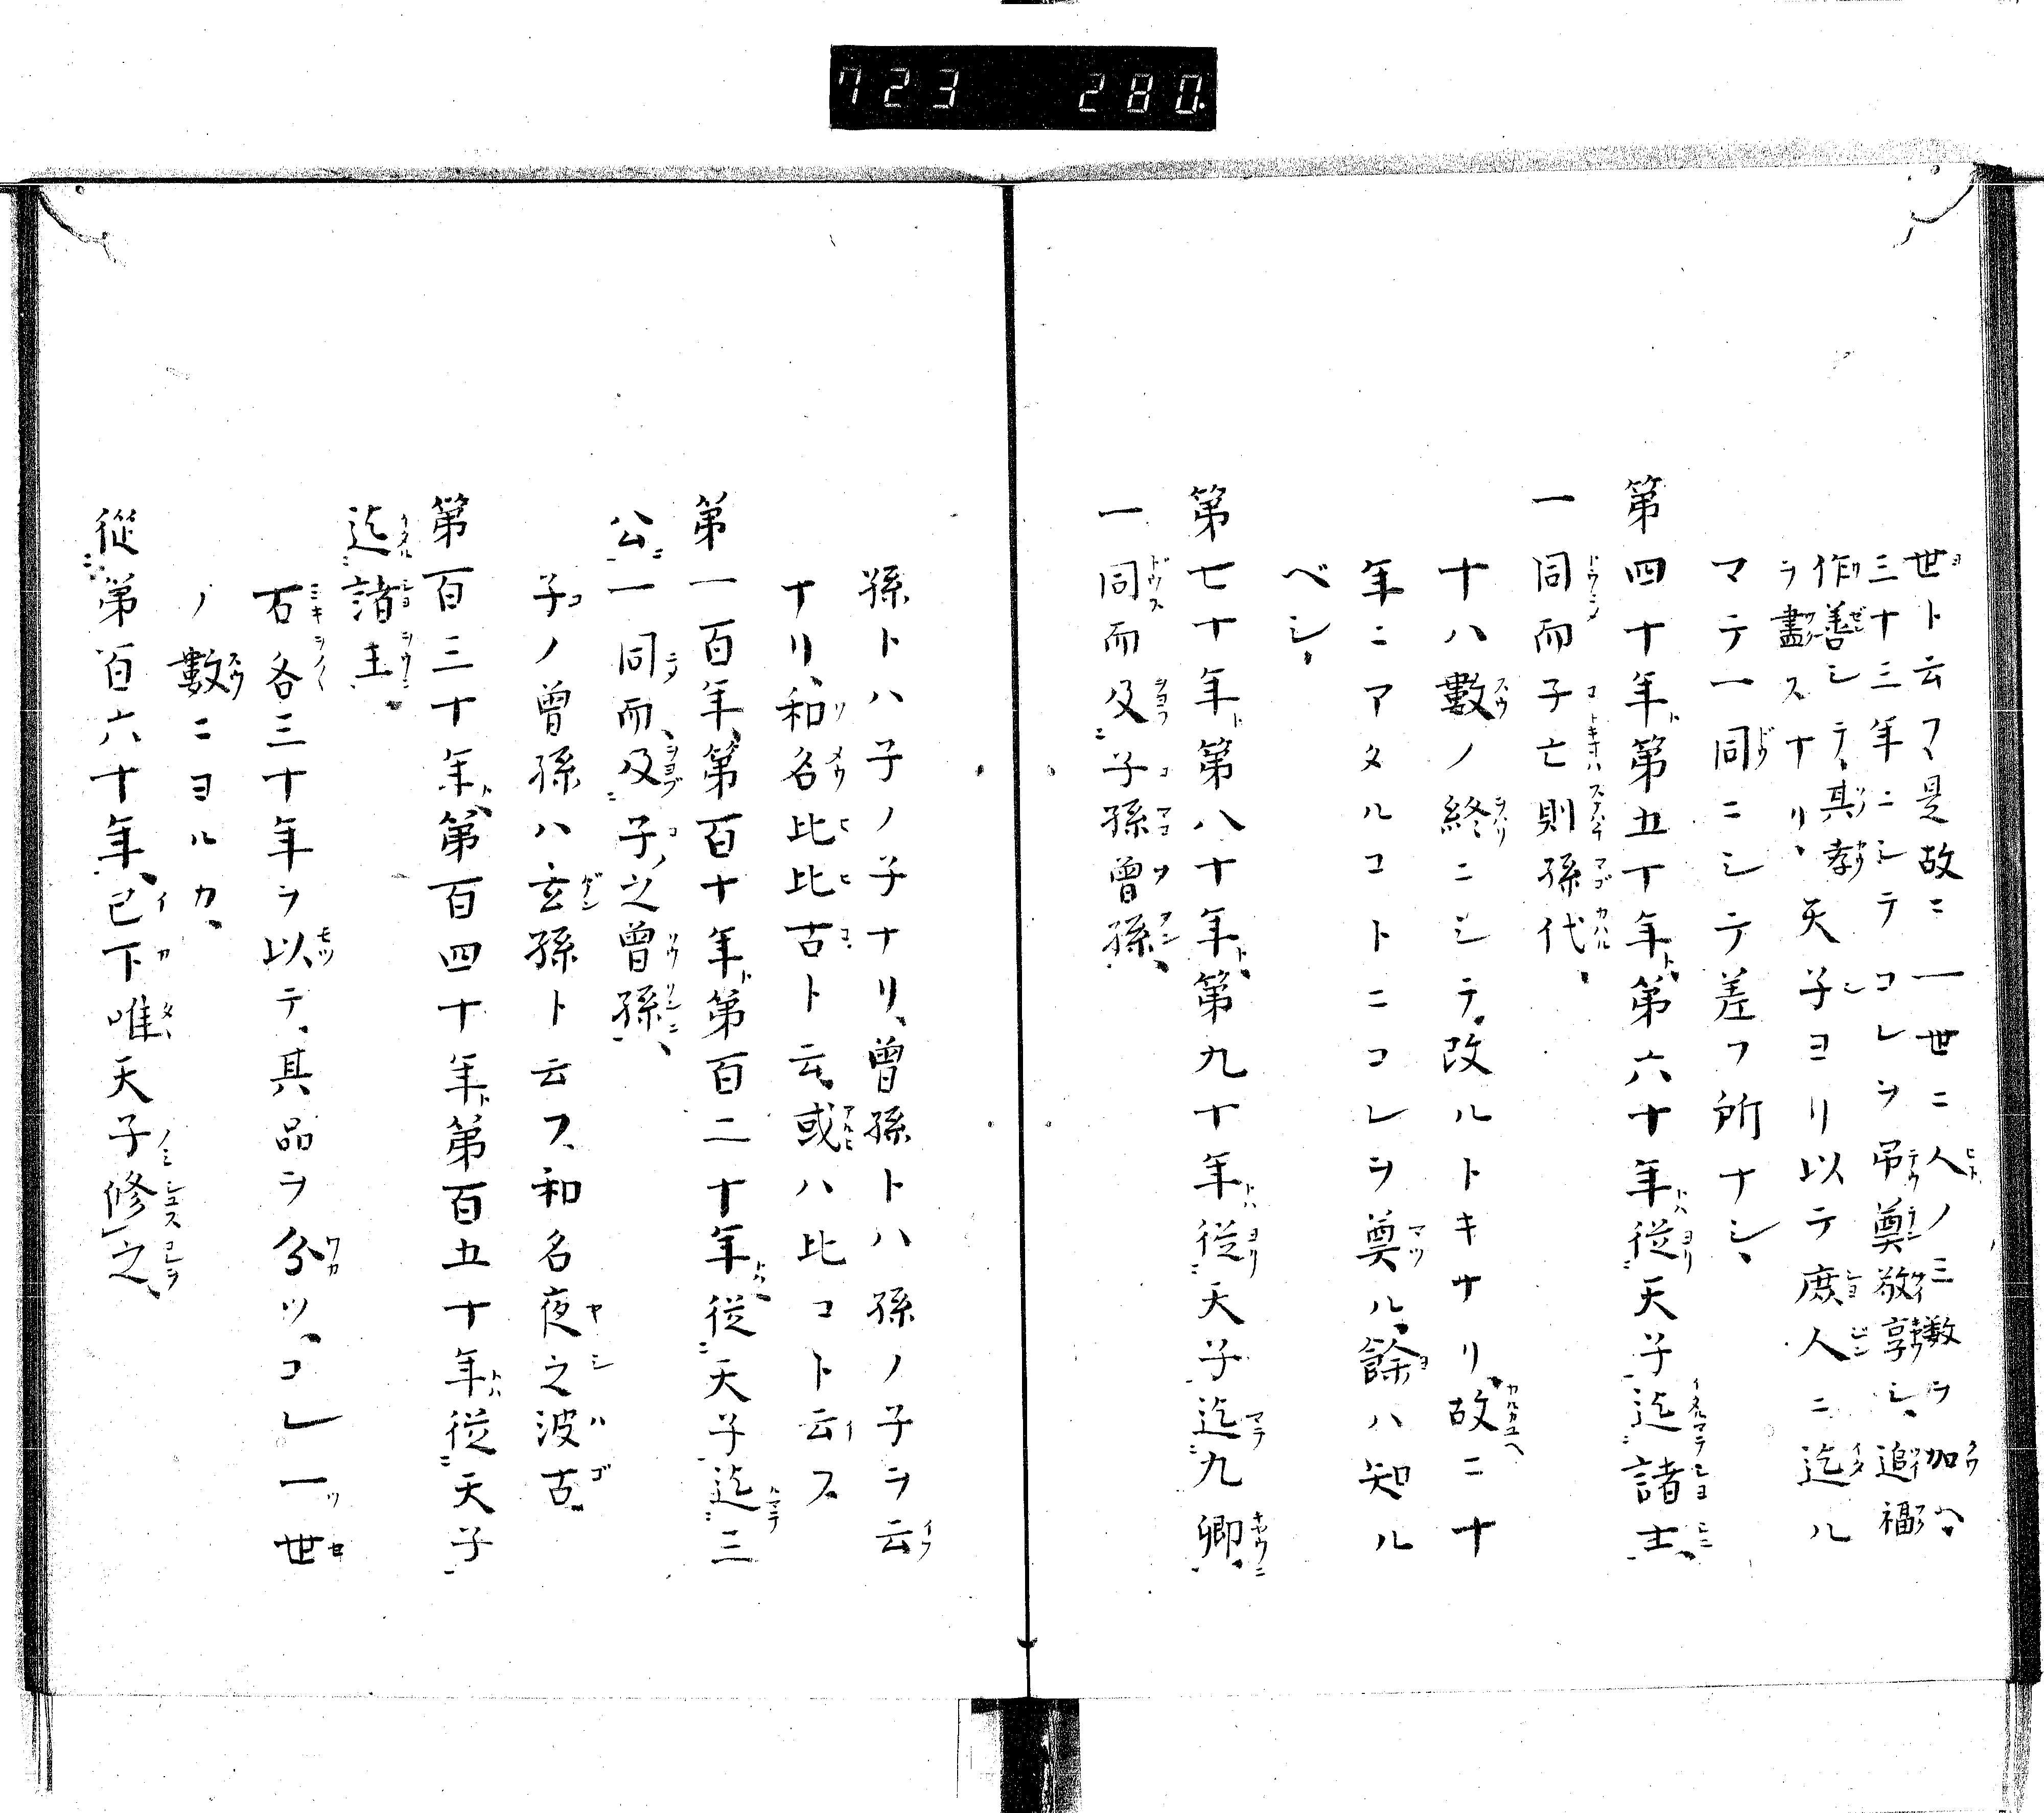 723 280.
世ト云フ是故ニ一世ニ人ノ三数ヲ加ヘ
三十三年ニシテコレヲ吊奠敬享シ追福
作善シテ其孝
ヲ盡スナリ、天子ヨリ以テ庶人ニ迄ル
マテ一同ニシテ差フ所ナシ、
第四十年ト第五十年ト第六十年トハ従天子迄諸士
一同而子亡則孫代、
十ハ數ノ終ニシテ改ルトキナリ故ニ十
年ニアタルコトニコレヲ奠ル餘ハ知ル
ベシ、
第七十年ト第八十年ト第九十年トハ従天子迄九卿
一同而及子孫曾孫、
孫トハ子ノ子ナリ、曾孫トハ孫ノ子ヲ云
ナリ、和名比比古ト云、或ハ比コト云ス
第一百年第百十年ト第百二十年トハ従天子迄三
公一同而及子之曾孫、
子ノ曾孫ハ玄孫ト云フ、和名夜之波古
第百三十年ト第百四十年ト第百五十年トハ従天子
迄諸主
右各三十年ヲ以テ、其品ヲ分ツ、コレ一世
ノ數ニヨルカ、
從第百六十年已下唯天子修之、